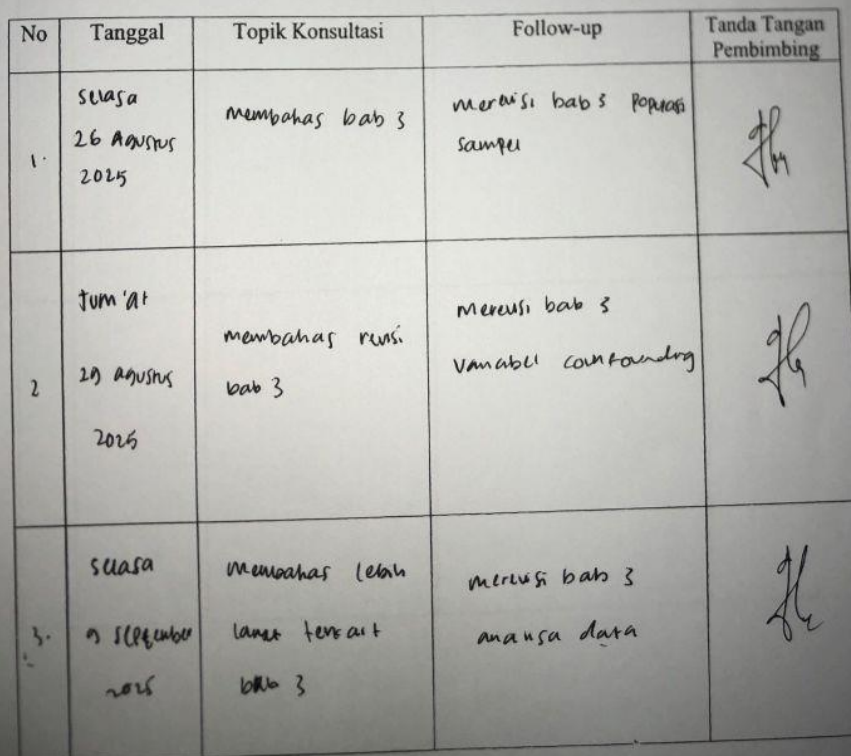 No Tanggal Topik Konsultasi Follow-up Tanda Tangan
Pembimbing
1.
selasa
26 Agustus
2025
membahas bab 3
merevisi bab 3 Populasi
sampel
2
Jum'at
29 agustus
2025
membahas revisi
bab 3
merevisi bab 3
variabel counfounding
3.
selasa
9 september
2025
membahas lebih
lanjut terkait
bab 3
merevisi bab 3
analisa data